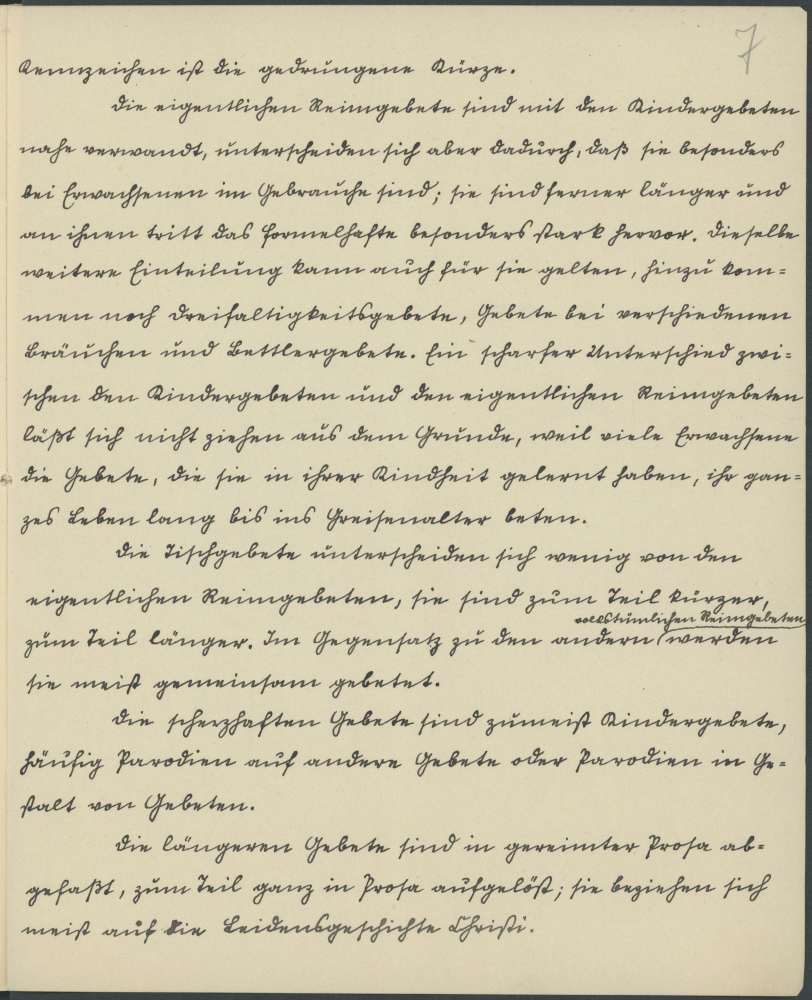 7
Kennzeichen ist die gedrungene Kürze.
Die eigentlichen Reimgebete sind mit den Kindergebeten
nahe verwandt, unterscheiden sich aber dadurch, daß sie besonders
bei Erwachsenen im Gebrauche sind; sie sind ferner länger und
an ihnen tritt das formelhafte besonders stark hervor. Dieselbe
weitere Einteilung kann auch für sie gelten, hinzu kom=
men noch Dreifaltigkeitsgebete, Gebete bei verschiedenen
Bräuchen und Bettlergebete. Ein scharfer Unterschied zwi=
schen den Kindergebeten und den eigentlichen Reimgebeten
läßt sich nicht ziehen aus dem Grunde, weil viele Erwachsene
die Gebete, die sie in ihrer Kindheit gelernt haben, ihr gan=
zes Leben lang bis ins Greisenalter beten.
Die Tischgebete unterscheiden sich wenig von den
eigentlichen Reimgebeten, sie sind zum Teil kürzer,
volkstümlichen Reimgebeten
zum Teil länger. Im Gegensatz zu den andern werden
sie meist gemeinsam gebetet.
Die scherzhaften Gebete sind zumeist Kindergebete,
häufig Parodien auf andere Gebete oder Parodien in Ge=
stalt von Gebeten.
Die längeren Gebete sind in gereimter Prosa ab=
gefaßt, zum Teil ganz in Prosa aufgelöst; sie beziehen sich
meist auf die Leidensgeschichte Christi.